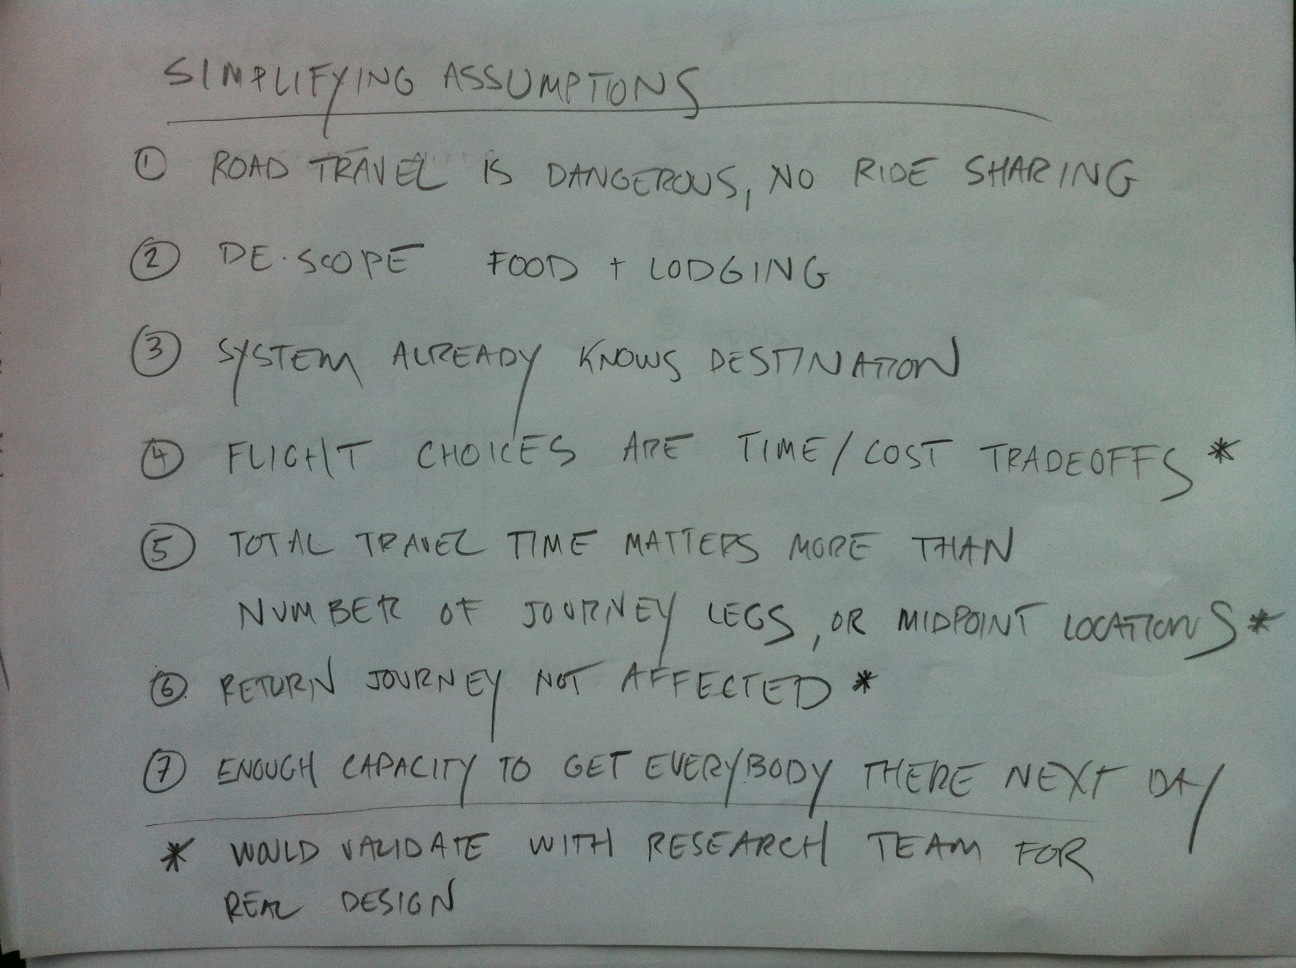 SIMPLIFYING ASSUMPTIONS
① ROAD TRAVEL IS DANGEROUS, NO RIDE SHARING
② DE-SCOPE FOOD + LODGING
③ SYSTEM ALREADY KNOWS DESTINATION
④ FLIGHT CHOICES ARE TIME/COST TRADEOFFS *
⑤ TOTAL TRAVEL TIME MATTERS MORE THAN
NUMBER OF JOURNEY LEGS, OR MIDPOINT LOCATIONS *
⑥ RETURN JOURNEY NOT AFFECTED *
⑦ ENOUGH CAPACITY TO GET EVERYBODY THERE NEXT DAY
* WOULD VALIDATE WITH RESEARCH TEAM FOR
REAL DESIGN